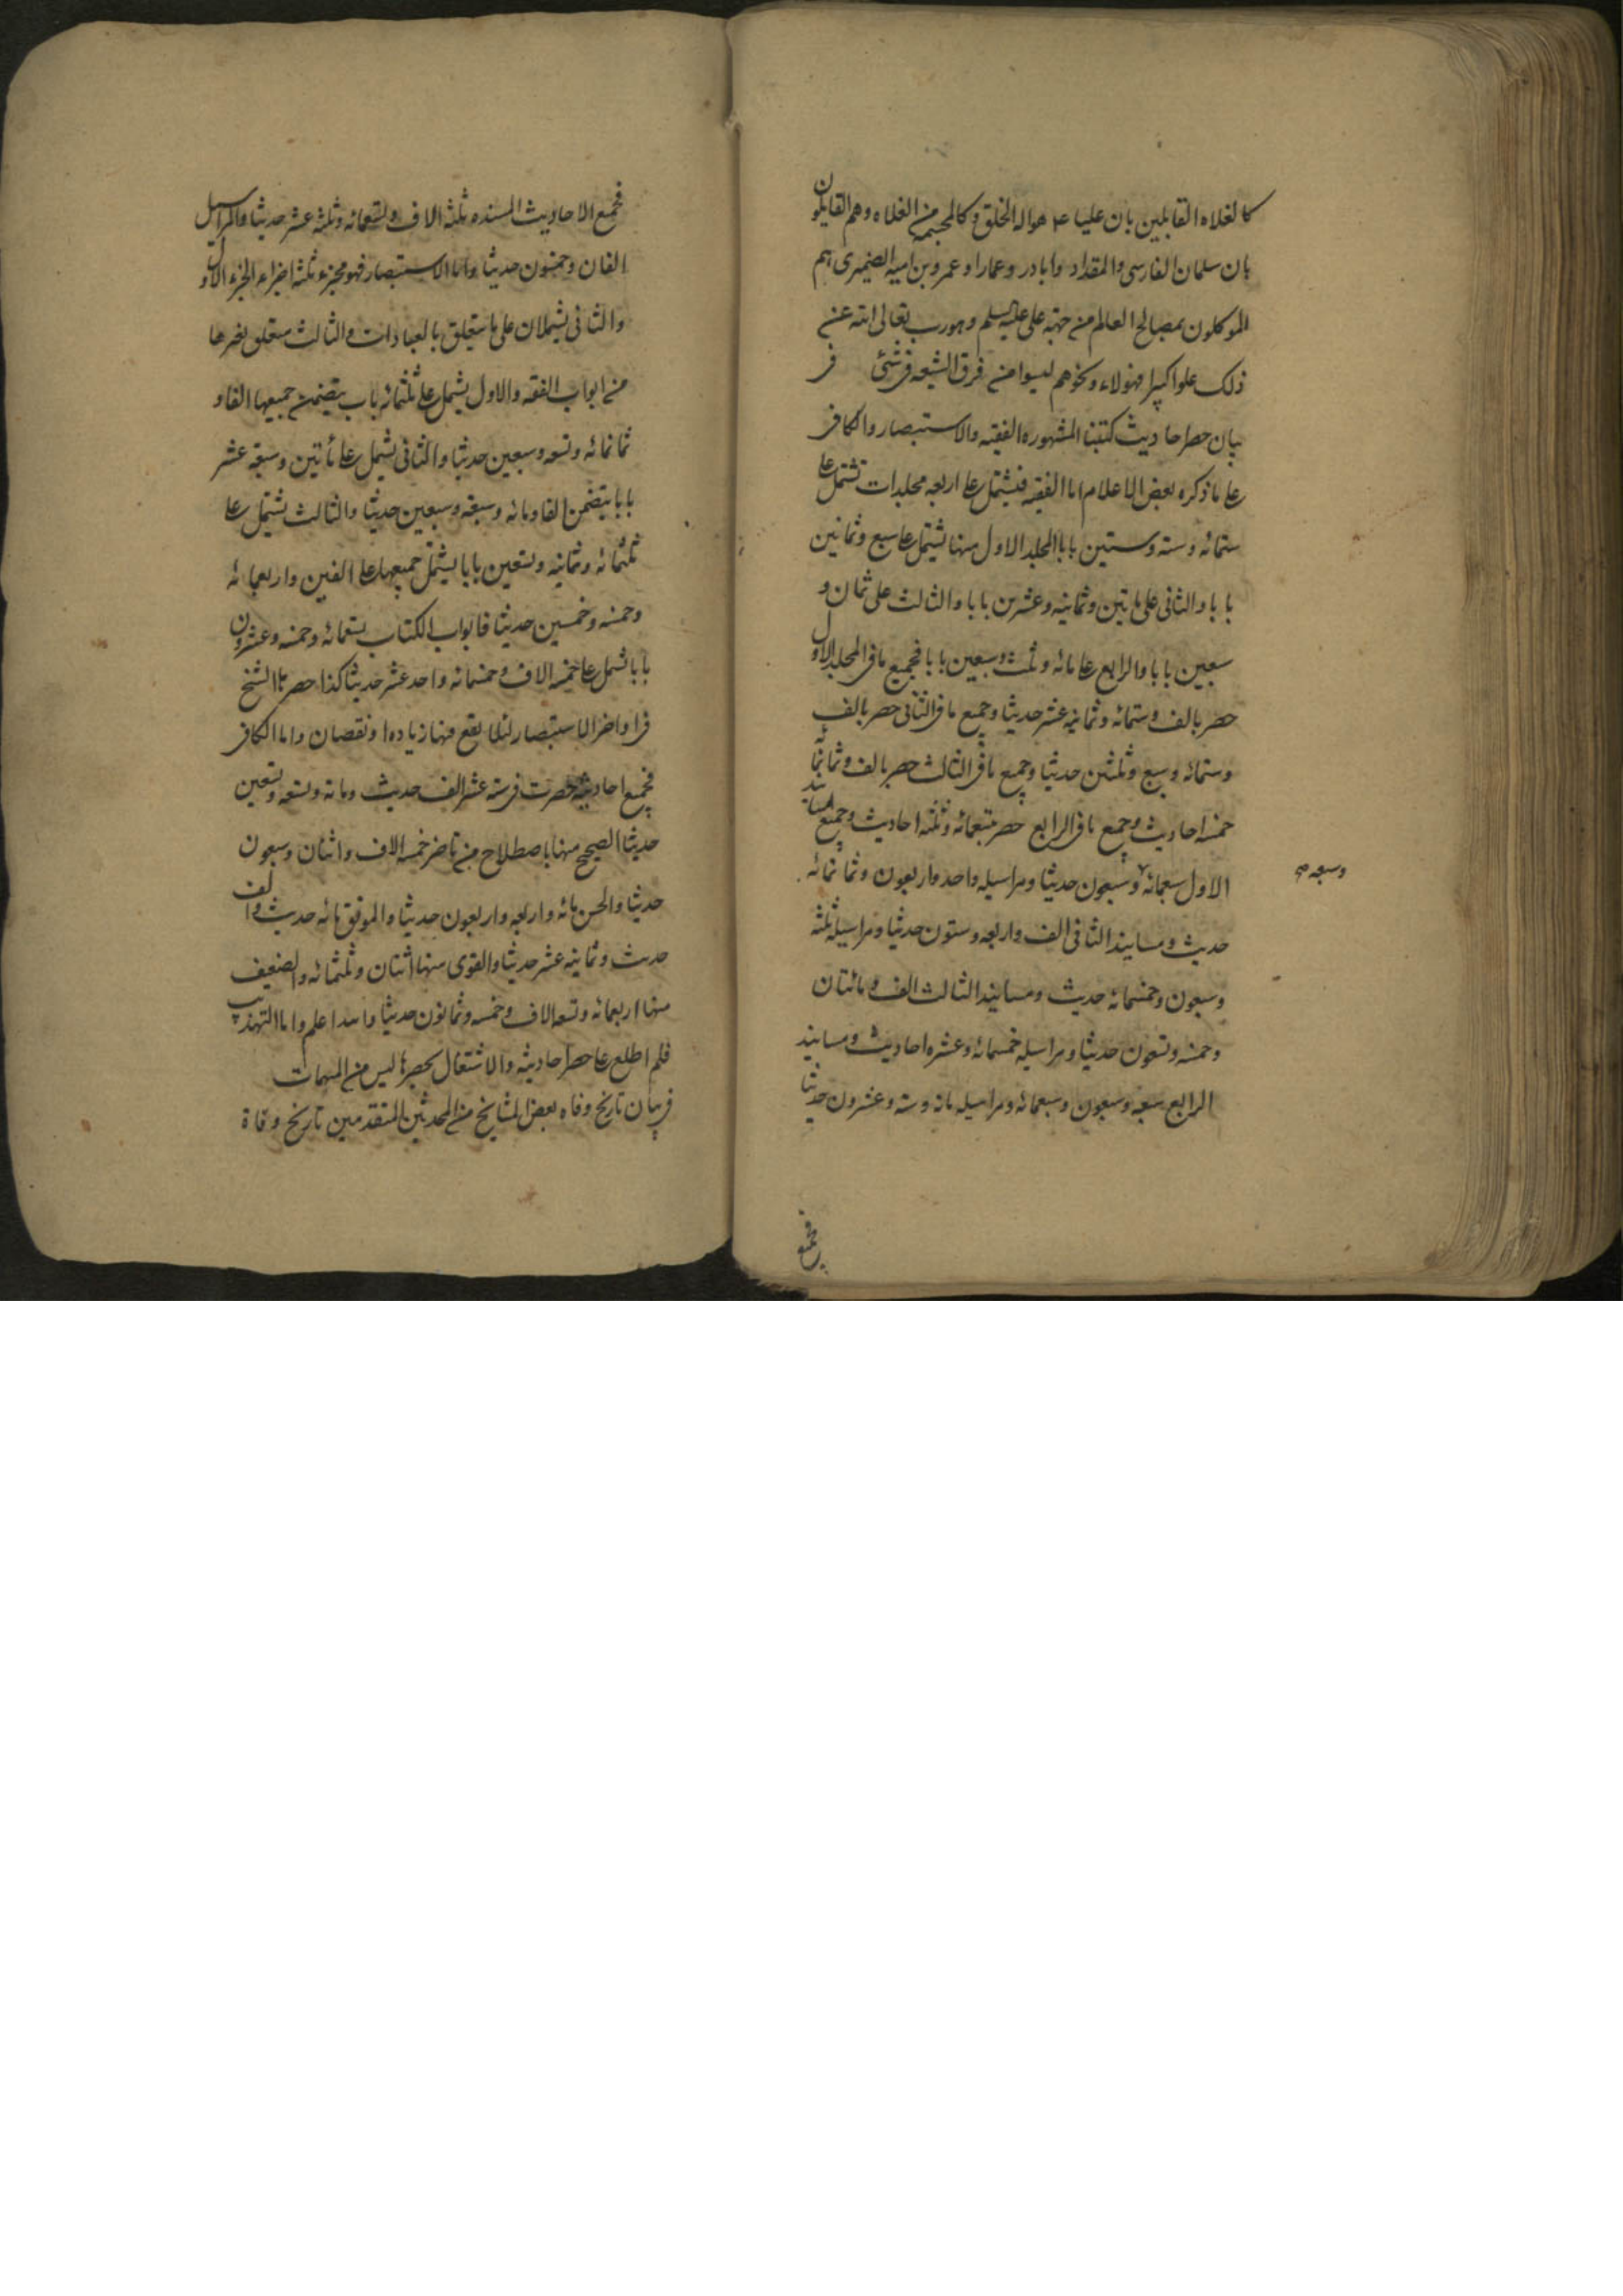 كالغلاه القايلين بان عليا ع هو اله الخلق وكالمخمسه من الغلاه وهم القايلون
بان سلمان الفارسى والمقداد وابا در وعمارا وعمرو بن اميه الضميرى هم
الموكلون بمصالح العالم من جهته على عليه السلم وهو رب تعالى الله عن
ذلك علوا كبيرا فهولاء ونحوهم ليسوا من فرق الشيعه فى شئى فى
بيان حصر احاديث كتبنا المشهوره الفقيه والاستبصار والكافى
على ما ذكره بعض الاعلام اما الفقيه فيشتمل على اربعه مجلدات تشتمل على
ستمائه وسته وستين بابا المجلد الاول منها يشتمل على سبع وثمانين
بابا والثانى على مايتين وثمانيه وعشرين بابا والثالث على ثمان و
سبعين بابا والرابع على مائه وثلث وسبعين بابا فجميع ما فى المجلد الاول
حصر بالف وستمائه وثمانيه عشر حديثا وجميع ما فى الثانى حصر بالف
وستمائه وسبع وثلثين حديثا وجميع ما فى الثالث حصر بالف وثمانمائه
خمسه احاديث وجميع ما فى الرابع حصر بتسعمائه وثلثه احاديث وجميع مسانيد
الاول سبعمائه وسبعون حديثا ومراسيله واحد واربعون وثمانمائه
وسبعه صح
حديث ومسانيد الثانى الف واربعه وستون حديثا ومراسيله ثلثه
وسبعون وخمسمائه حديث ومسانيد الثالث الف ومائتان
وخمسه وتسعون حديثا ومراسيله خمسمائه وعشره احاديث ومسانيد
الرابع سبعه وسبعون وسبعمائه ومراسيله مائه وسته وعشرون حديثا
فجميع
فجميع الاحاديث المسنده ثلثه الاف وتسعمائه وثلثه عشر حديثا والمراسيل
الفان وخمسون حديثا واما الاستبصار فهو مجزء ثلثه اجزاء الجزء الاول
والثانى يشملان على ما يتعلق بالعبادات والثالث متعلق بغيرها
من ابواب الفقه والاول يشمل على ثلثمائه باب يتضمن جميعها الفا و
ثمانمائه وتسعه وسبعين حديثا والثانى يشمل على مأتين وسبعه عشر
بابا يتضمن الفا ومائه وسبعه وسبعين حديثا والثالث يشتمل على
ثلثمائه وثمانيه وتسعين بابا يشتمل جميعها على الفين واربعمائه
وخمسه وخمسين حديثا فابواب الكتاب تسعمائه وخمسه وعشرون
بابا تشمل على خمسه الاف وخمسمائه واحد عشر حديثا كذا حصرها الشيخ
فى اواخر الاستبصار لئلا يقع فيها زياده او نقصان واما الكافى
فجميع احاديثه حصرت فى سته عشر الف حديث ومائه وتسعه وتسعين
حديثا الصحيح منها باصطلاح من تاخر خمسه الاف واثنان وسبعون
حديثا والحسن مائه واربعه واربعون حديثا والموثق مائه حديث والف
حديث وثمانيه عشر حديثا والقوى منها اثنان وثلثمائه والضعيف
منها اربعمائه وتسعه الاف وخمسه وثمانون حديثا والله اعلم واما التهذيب
فلم اطلع على حصر احاديثه والاشتغال بحصرها ليس من المهمات
فى بيان تاريخ وفاه بعض المشايخ من المحدثين المتقدمين تاريخ وفاة